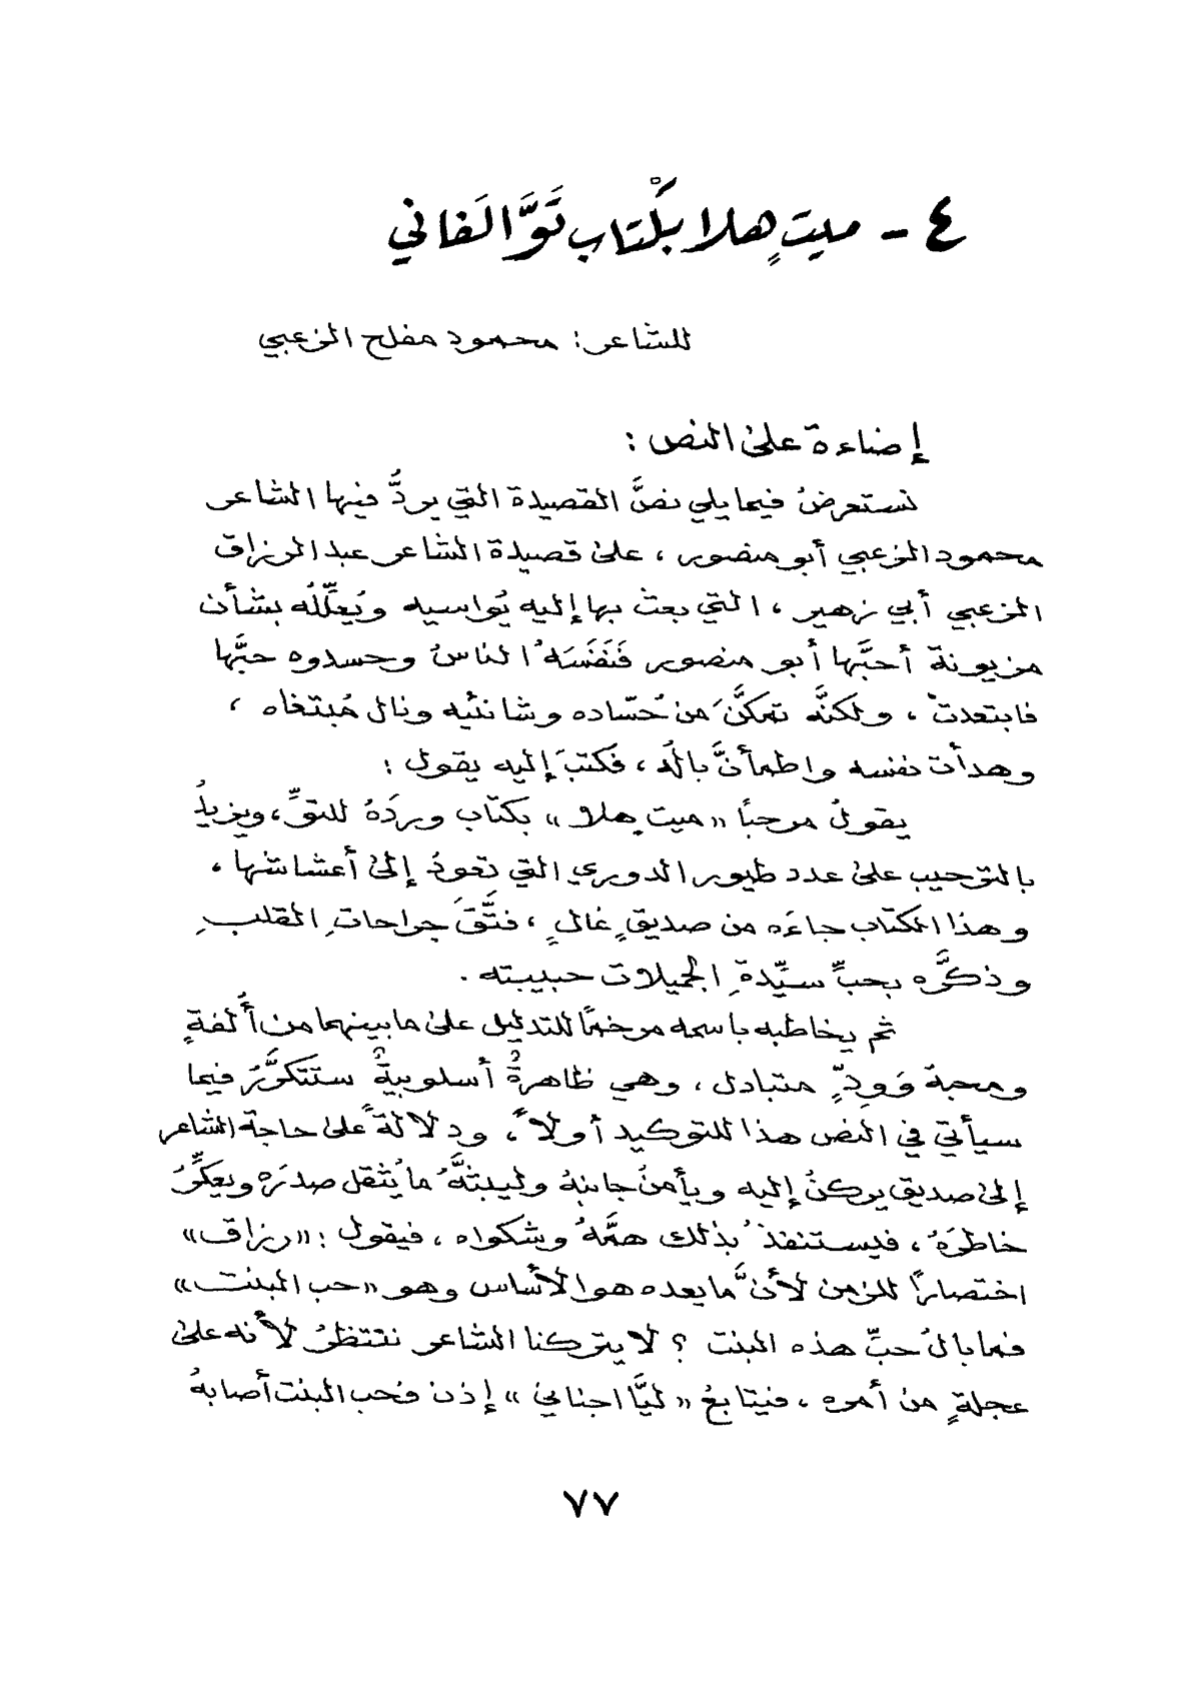 ٤ - ميتٍ هلا بْكتاب تَوَّ الَفاني
للشاعر: محمود مفلح الزعبي
إضاءة على النص :
نستعرضُ فيما يلي نصَّ القصيدة التي يردُّ فيها الشاعر
محمود الزعبي أبو منصور ، على قصيدة الشاعر عبد الرزاق
الزعبي أبي زهير ، التي بعث بها إليه يُواسيه ويُعلِّلُه بشأن
مزيونة أحبَّها أبو منصور فَنَفَسَهُ الناسُ وحسدوه حبَّها
فابتعدتْ ، ولكنَّه تمكَّنَ من حُسّاده وشانئيه ونال مُبتغاه ،
وهدأت نفسه واطمأنَّ بالُه ، فكتبَ إليه يقول :
يقولُ مرحباً «ميتٍ هلا» بكتاب وردَهُ للتوِّ ، ويزيدُ
بالترحيب على عدد طيور الدوري التي تعودُ إلى أعشاشها ،
وهذا الكتاب جاءَه من صديقٍ غالٍ ، فتَّقَ جراحاتِ القلبِ
وذكَّره بحبِّ سيِّدةِ الجميلات حبيبته .
ثم يخاطبه باسمه مرخماً للتدليل على ما بينهما من أُلفةٍ
ومحبة وَوِدٍّ متبادل ، وهي ظاهرةٌ أسلوبيةٌ ستتكرَّرُ فيما
سيأتي في النص هذا للتوكيد أولاً ، ودلالةً على حاجة الشاعر
إلى صديق يركنُ إليه ويأمنُ جانبهُ وليبثَّهُ ما يُثقل صدرَه ويعكِّرُ
خاطرَهُ ، فيستنفذُ بذلك همَّهُ وشكواه ، فيقول : «رزاق»
اختصاراً للزمن لأنَّ ما يعده هو الأساس وهو «حب البنت»
فما بالُ حبِّ هذه البنت ؟ لا يتركنا الشاعر ننتظرُ لأنه على
عجلةٍ من أمره ، فيتابعُ «ليَّا اجناني» إذن فحب البنت أصابهُ
٧٧